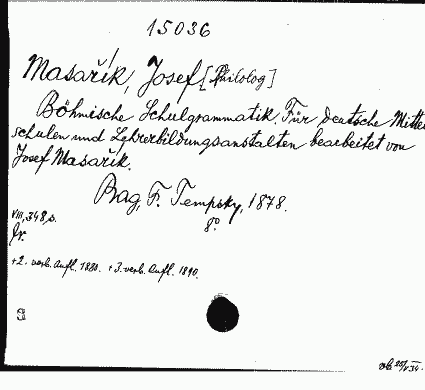 15036
Masařík, Josef [Philolog]
Böhmische Schulgrammatik. Für deutsche Mittel
schulen und Lehrerbildungsanstalten bearbeitet von
Josef Masařík.
Prag, F. Tempsky, 1878.
VIII, 348, s. 8°.
+2. verb. Aufl. 1880. +3. verb. Aufl. 1890.